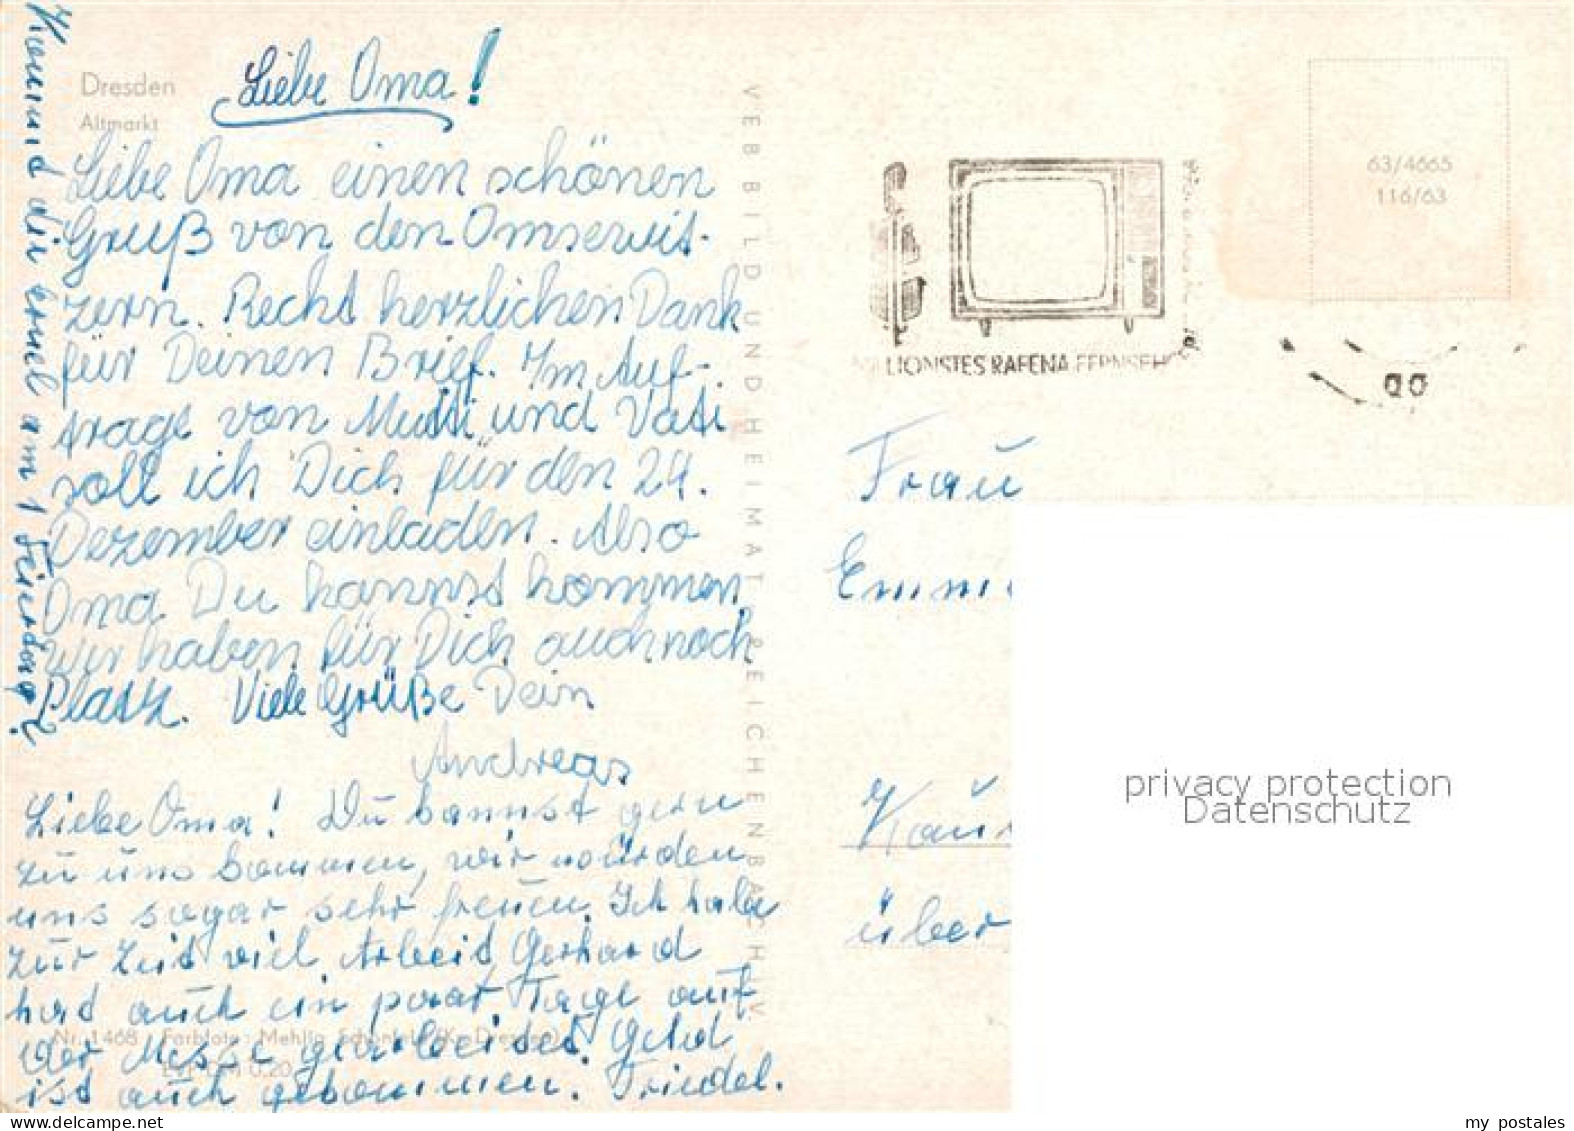 Dresden
Altmarkt
Liebe Oma!
Liebe Oma einen schönen
Gruß von den Omsewit-
zern. Recht herzlichen Dank
für Deinen Brief. Im Auf-
trage von Mutti und Vati
soll ich Dich für den 24.
Dezember einladen. Also
Oma Du kannst kommen,
wir haben für Dich auch noch
Platz. Viele Grüße Dein
Andreas
Liebe Oma! Du kannst gern
zu uns kommen, wir würden
uns sogar sehr freuen. Ich habe
zur Zeit viel Arbeit Gerhard
hat auch ein paar Tage auf
der Messe gearbeitet. Geld
ist auch gekommen. Friedel.
Kommst du am 1 Feiertag?
VEB BILD UND HEIMAT REICHENBACH I. V.
Nr. 1468 Farbfoto: Mehlig
0.20
LIONSTES RAFENA FERNSEH
63/4665
116/63
Frau
Emm
über
privacy protection
Datenschutz
my postales